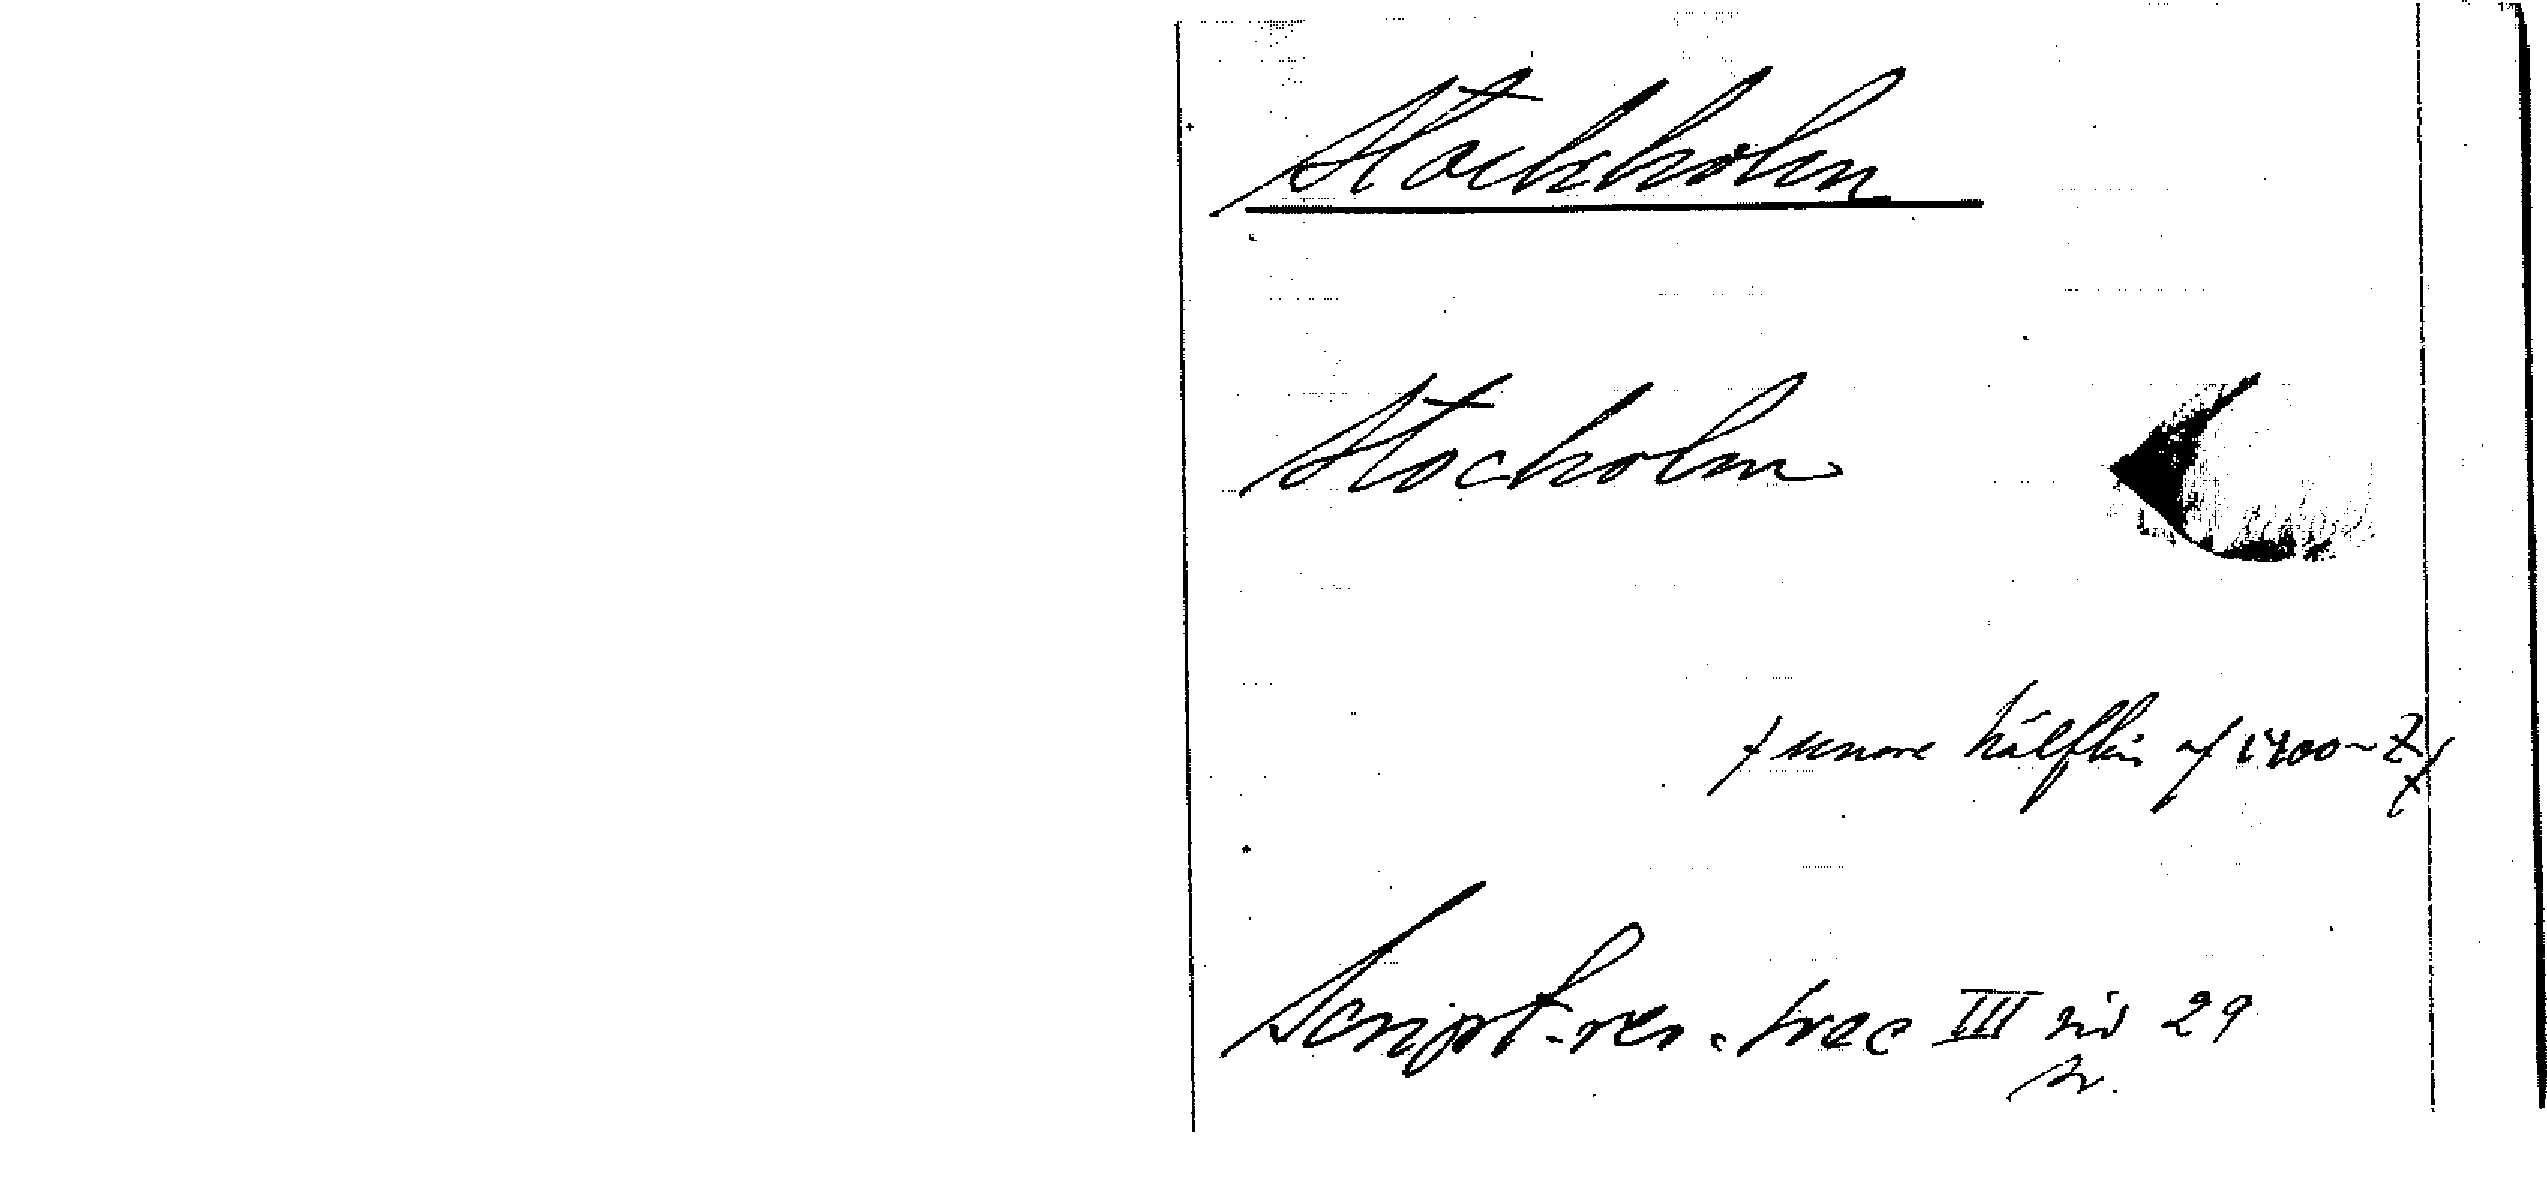 Stockholm
Stocholm
senare hälften af 1400-
Script. rer. svec III sid 29